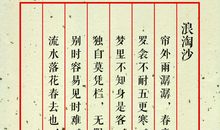 浪淘沙
帘外雨潺潺，春
罗衾不耐五更寒
梦里不知身是客
独自莫凭栏，无
别时容易见时难
流水落花春去也